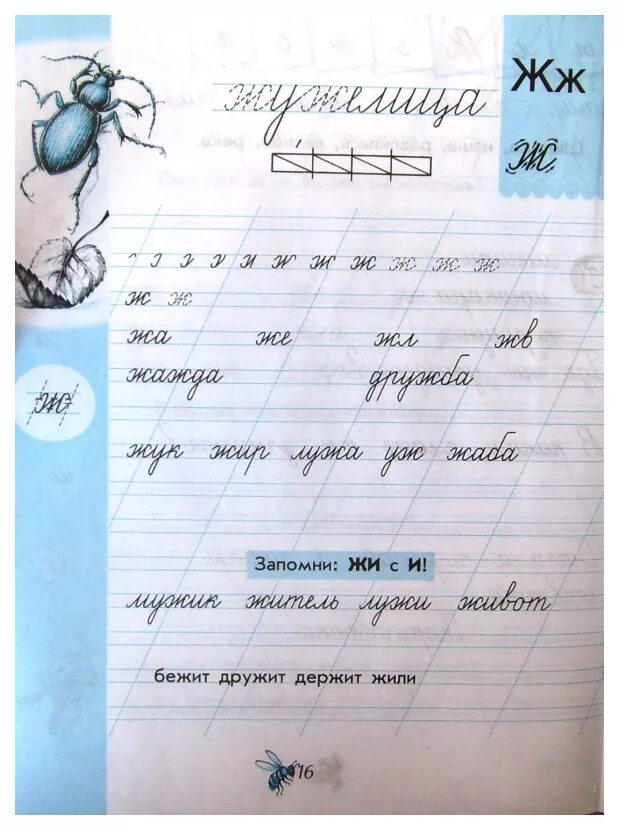 Жж
жужелица
Ж
ж ж ж ж ж ж
ж ж
жа же жл жв
жажда дружба
ж
жук жир лужа уж жаба
Запомни: ЖИ с И!
мужик житель лужи живот
бежит дружит держит жили
16